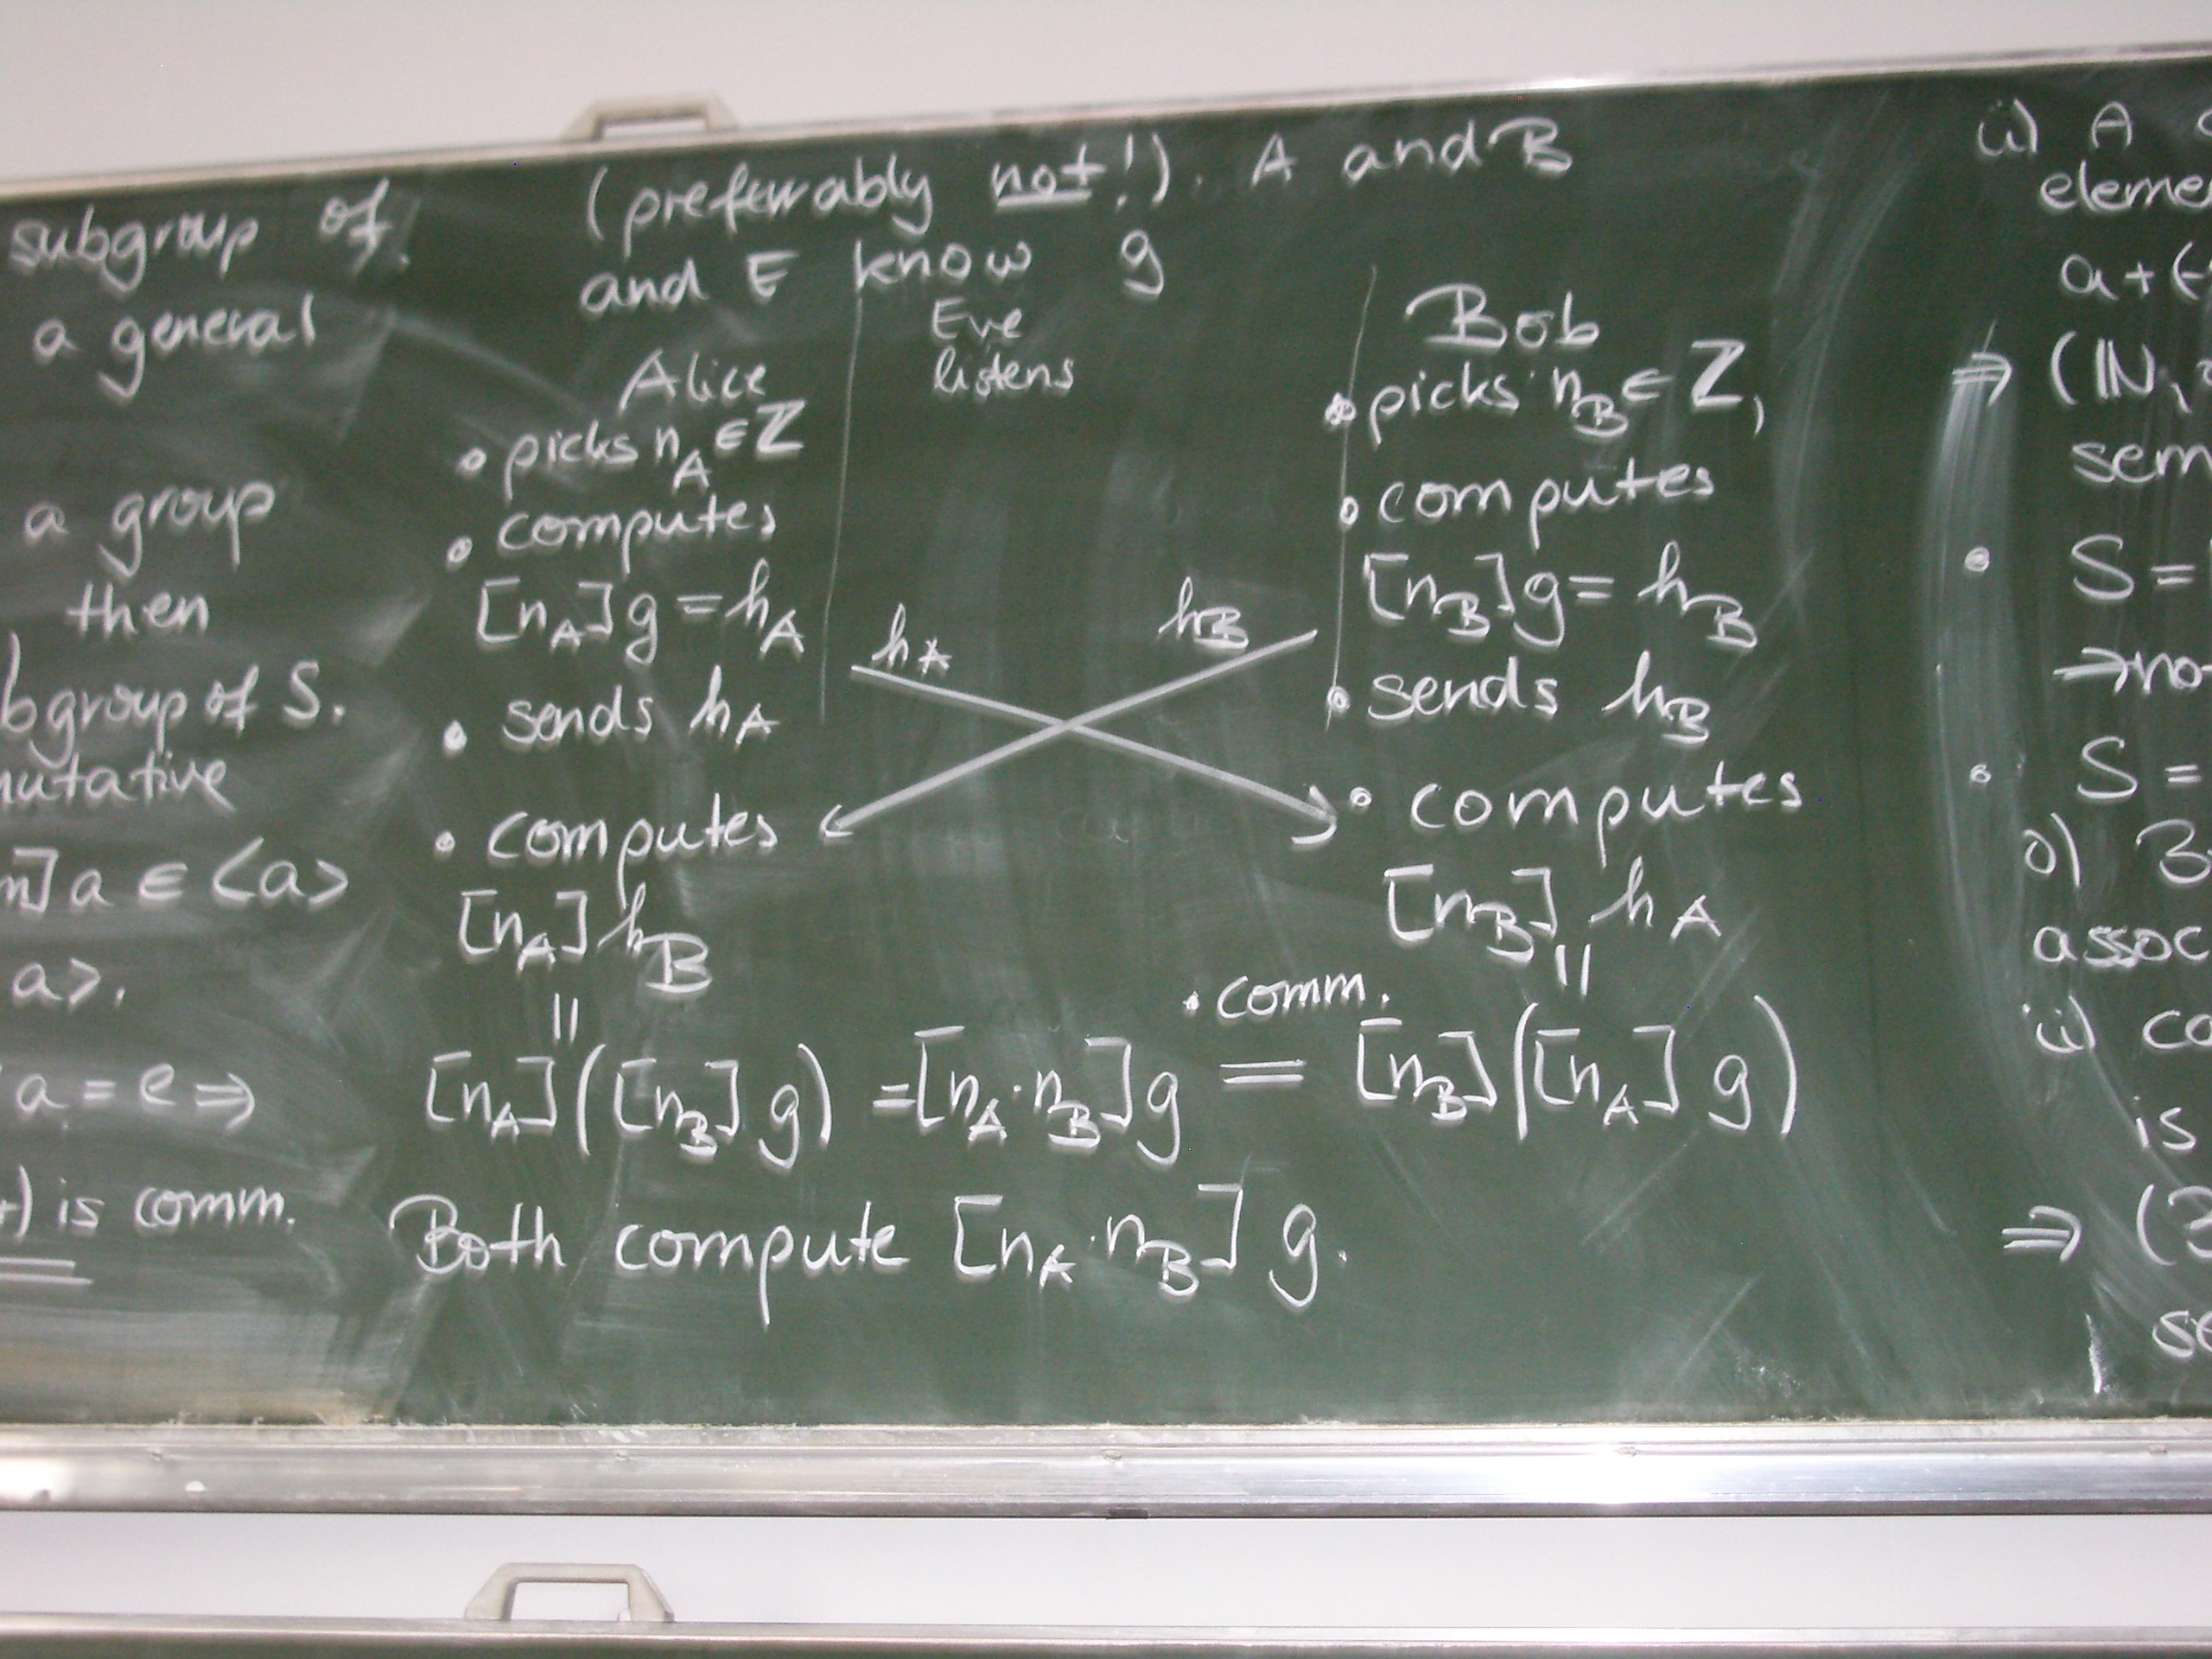 subgroup of
a general
a group
then
bgroup of S.
mutative
n]a ∈ <a>
a>.
a = e ⇒
+) is comm.
(preferrably not!). A and B
and E know g
Eve
listens
Alice
• picks n_A ∈ Z
• computes
[n_A]g = h_A
• sends h_A
• computes
[n_A] h_B
||
h_A
h_B
Bob
• picks n_B ∈ Z,
• computes
[n_B]g = h_B
• sends h_B
• computes
[n_B] h_A
||
• comm.
[n_A]([n_B] g) = [n_A·n_B]g = [n_B]([n_A] g)
Both compute [n_A·n_B] g.
ii) A
eleme
a + (-
⇒ (IN,
sem
• S =
⇒ no
• S =
o)
assoc
ii) co
is
⇒ (
se